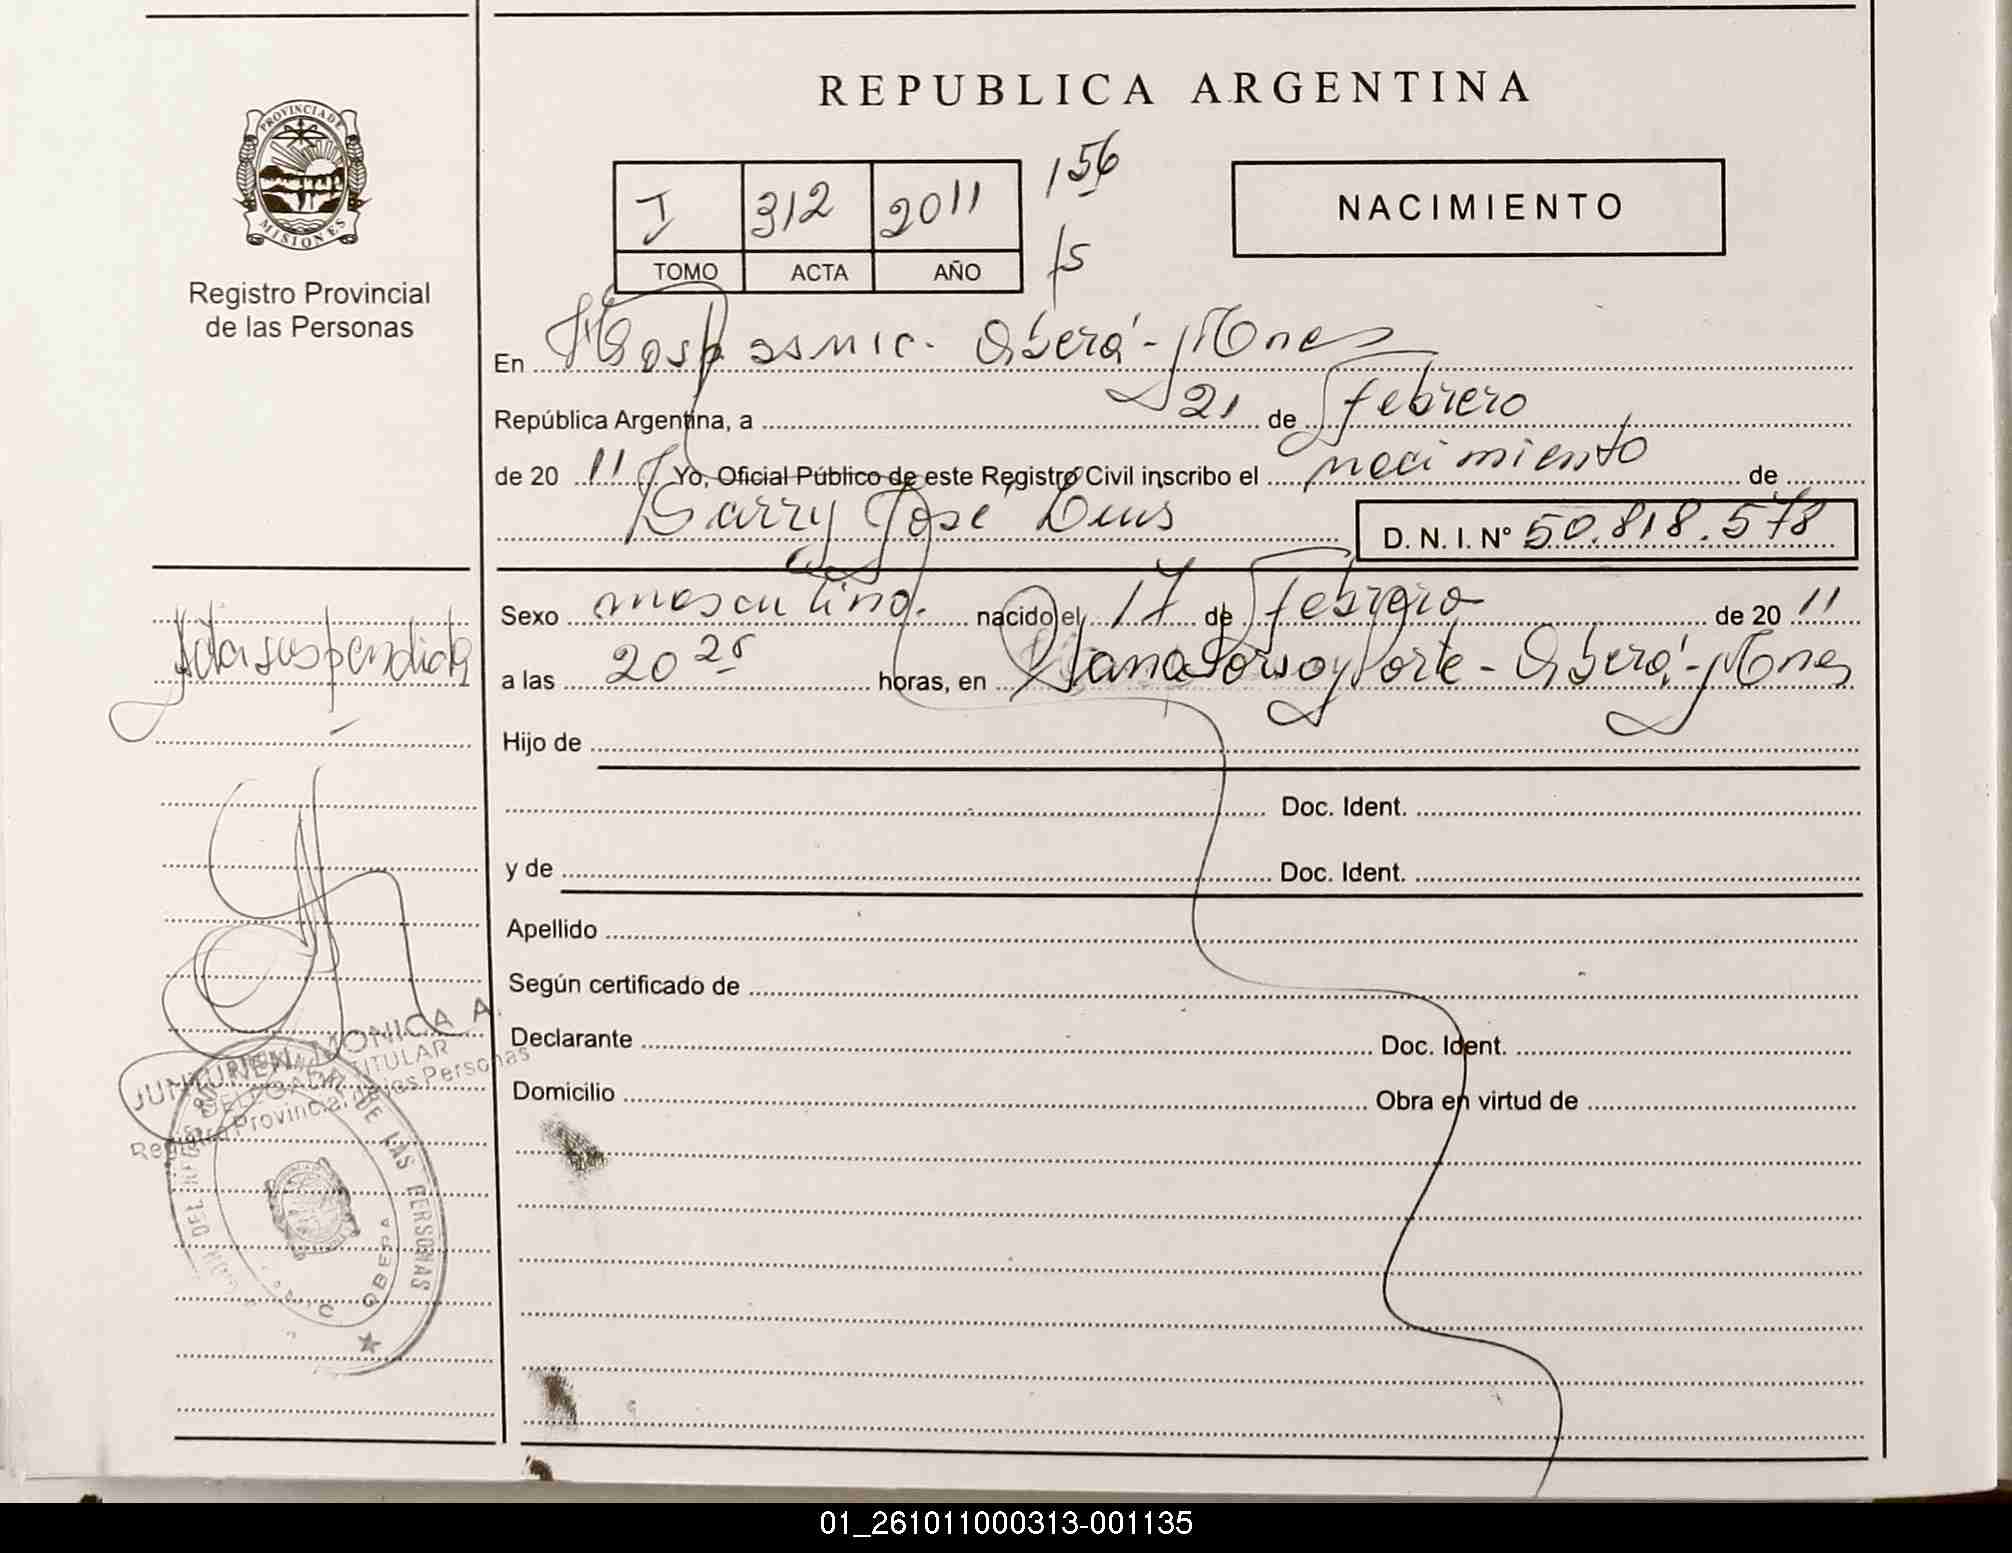 REPUBLICA ARGENTINA
PROVINCIA DE
MISIONES
Registro Provincial
de las Personas
I 312 2011
TOMO ACTA AÑO
156
fs
NACIMIENTO
En Hosp. Oberá - Mnes
República Argentina, a 21 de febrero
de 20 11 Yo, Oficial Público de este Registro Civil inscribo el nacimiento de
José
D. N. I. Nº 50.818.578
Sexo masculino. nacido el 17 de febrero de 20 11
a las 20 25 horas, en Sanatorio Norte - Oberá - Mnes
Hijo de
Doc. Ident.
y de Doc. Ident.
Apellido
Según certificado de
Declarante Doc. Ident.
Domicilio Obra en virtud de
Acta suspendida
JUNTUNEN, MONICA A.
DELEGADA TITULAR
Registro Provincial de las Personas
DE LAS PERSONAS
OBERA
01_261011000313-001135